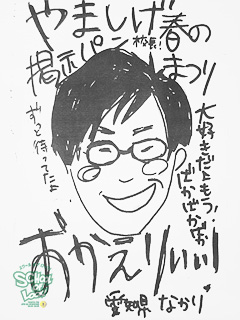 やましげ春の
掲示パン校長!
まつり
ずっと待ってたよ!
大好きだともう!
ばかばかばか
おかえりいい
愛知県 なかり